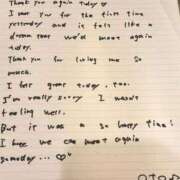 Thank you again today ♡
I saw you for the first time
yesterday and it felt like a
dream that we'd meet again
today.
Thank you for loving me so
much.
I felt great today, too.
I'm really sorry I wasn't
feeling well.
But it was a so happy time!
I hope we can meet again
someday... ♡